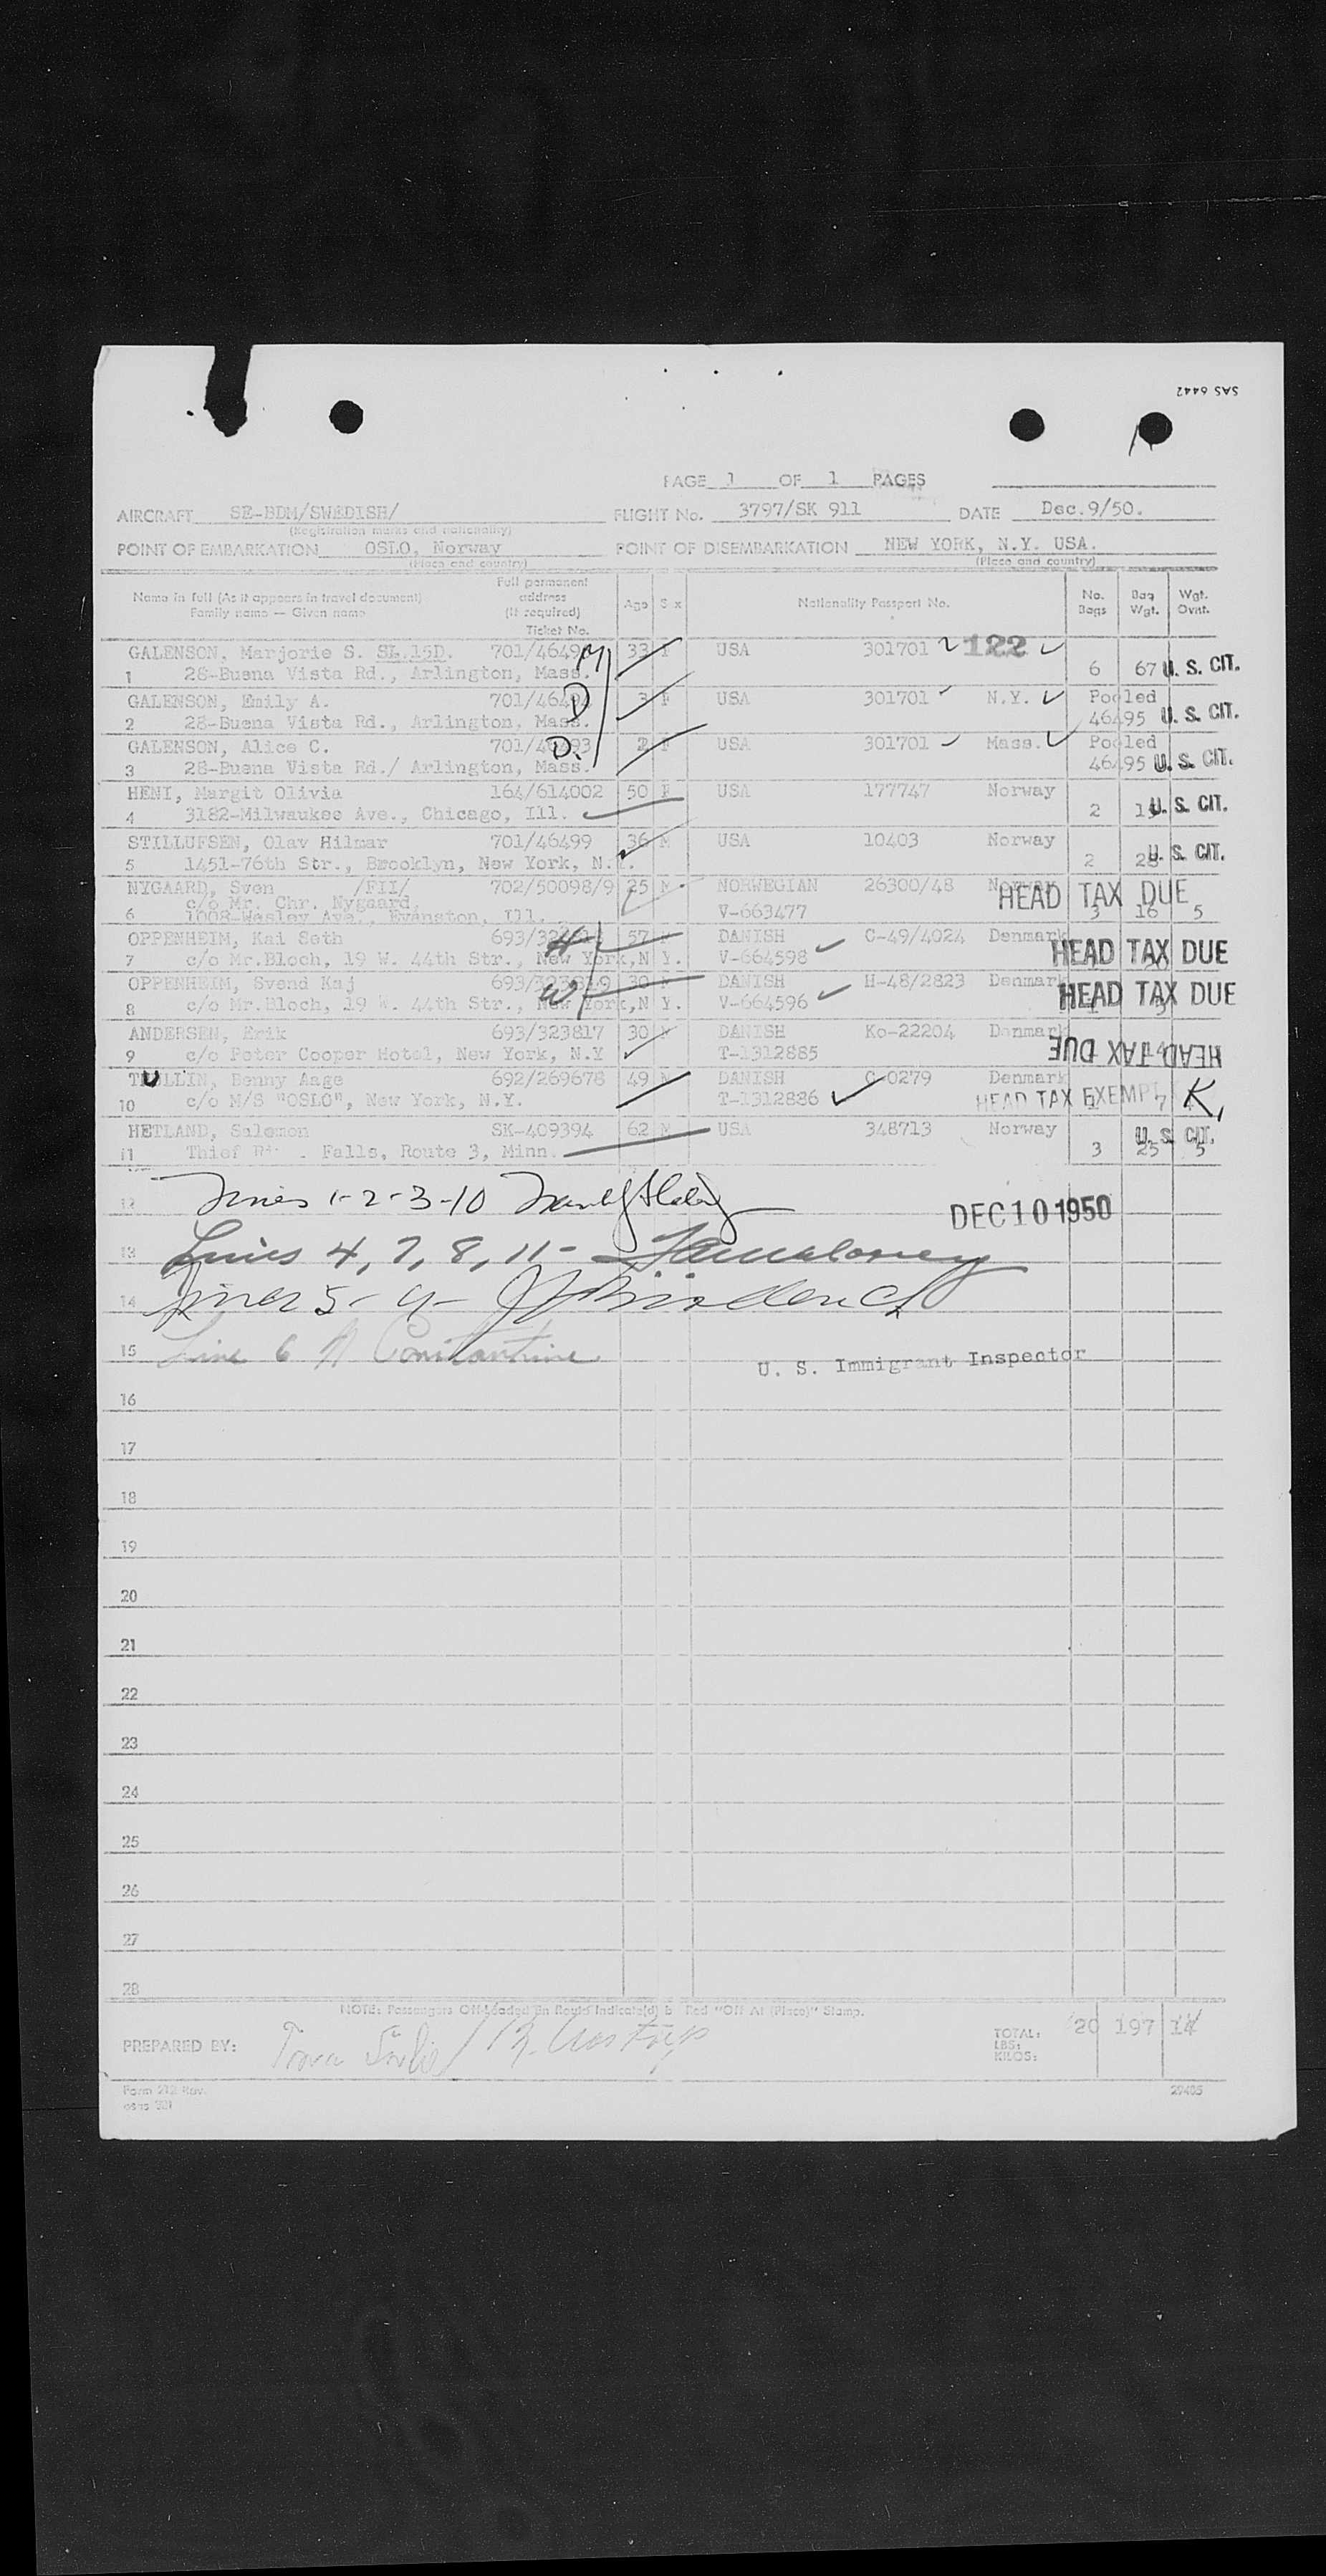 SAS 6442
PAGE 1 OF 1 PAGES
AIRCRAFT SE-BDM/SWEDISH/ FLIGHT No. 3797/SK 911 DATE Dec.9/50.
(Registration marks and nationality)
POINT OF EMBARKATION OSLO, Norway POINT OF DISEMBARKATION NEW YORK, N.Y. USA.
(Place and country) (Place and country)
Name in full (As it appears in travel document) Family name — Given name Full permanent address (if required) Ticket No. Age Sex Nationality Passport No. No. Bags Bag Wgt. Wgt. Ovnt.
GALENSON, Marjorie S. SL.15D. 33 F USA 301701 122
1 28-Buena Vista Rd., Arlington, Mass. M 6 67 U. S. CIT.
GALENSON, Emily A. 3 F USA 301701 N.Y. Pooled
2 28-Buena Vista Rd., Arlington, Mass. D 46495 U. S. CIT.
GALENSON, Alice C. D. 2 F USA 301701 Mass. Pooled
3 28-Buena Vista Rd./ Arlington, Mass. 46495 U. S. CIT.
HENI, Margit Olivia 164/614002 50 F USA 177747 Norway
4 3182-Milwaukee Ave., Chicago, Ill. 2 U. S. CIT.
STILLUFSEN, Olav Hilmar 701/46499 36 M USA 10403 Norway
5 1451-76th Str., Brooklyn, New York, N.Y. 2 U. S. CIT.
NYGAARD, Sven /FII/ 702/50098/9 25 M NORWEGIAN 26300/48 Norway HEAD TAX DUE
c/o Mr. Chr. Nygaard,
6 1008-Wesley Ave., Evanston, Ill. V-663477 3 16 5
OPPENHEIM, Kai Seth H 57 M DANISH C-49/4024 Denmark
7 c/o Mr.Bloch, 19 W. 44th Str., New York,N Y. V-664598 HEAD TAX DUE
OPPENHEIM, Svend Kaj W 30 M DANISH H-48/2823 Denmark
8 c/o Mr.Bloch, 19 W. 44th Str., New York,N Y. V-664596 HEAD TAX DUE
ANDERSEN, Erik 693/323817 30 M DANISH Ko-22204 Denmark
9 c/o Peter Cooper Hotel, New York, N.Y T-1312885 HEAD TAX DUE
TUOLLIN, Benny Aage 692/269678 49 M DANISH C-0279 Denmark
10 c/o M/S "OSLO", New York, N.Y. T-1312886 HEAD TAX EXEMPT K,
HETLAND, Salemon SK-409394 62 M USA 348713 Norway U. S. CIT.
11 Thief Falls, Route 3, Minn. 3 25 5
12 Lines 1-2-3-10 DEC 10 1950
13 Lines 4, 7, 8, 11-
14 Lines 5- 9-
15 Line 6 Constantine U. S. Immigrant Inspector
16
17
18
19
20
21
22
23
24
25
26
27
28
NOTE: Passengers Off-Loaded En Route Indicate(d) by Red "Off At (Place)" Stamp.
PREPARED BY: TOTAL: 20 197 14
LBS:
KILOS:
Form 212 Rev. 29405